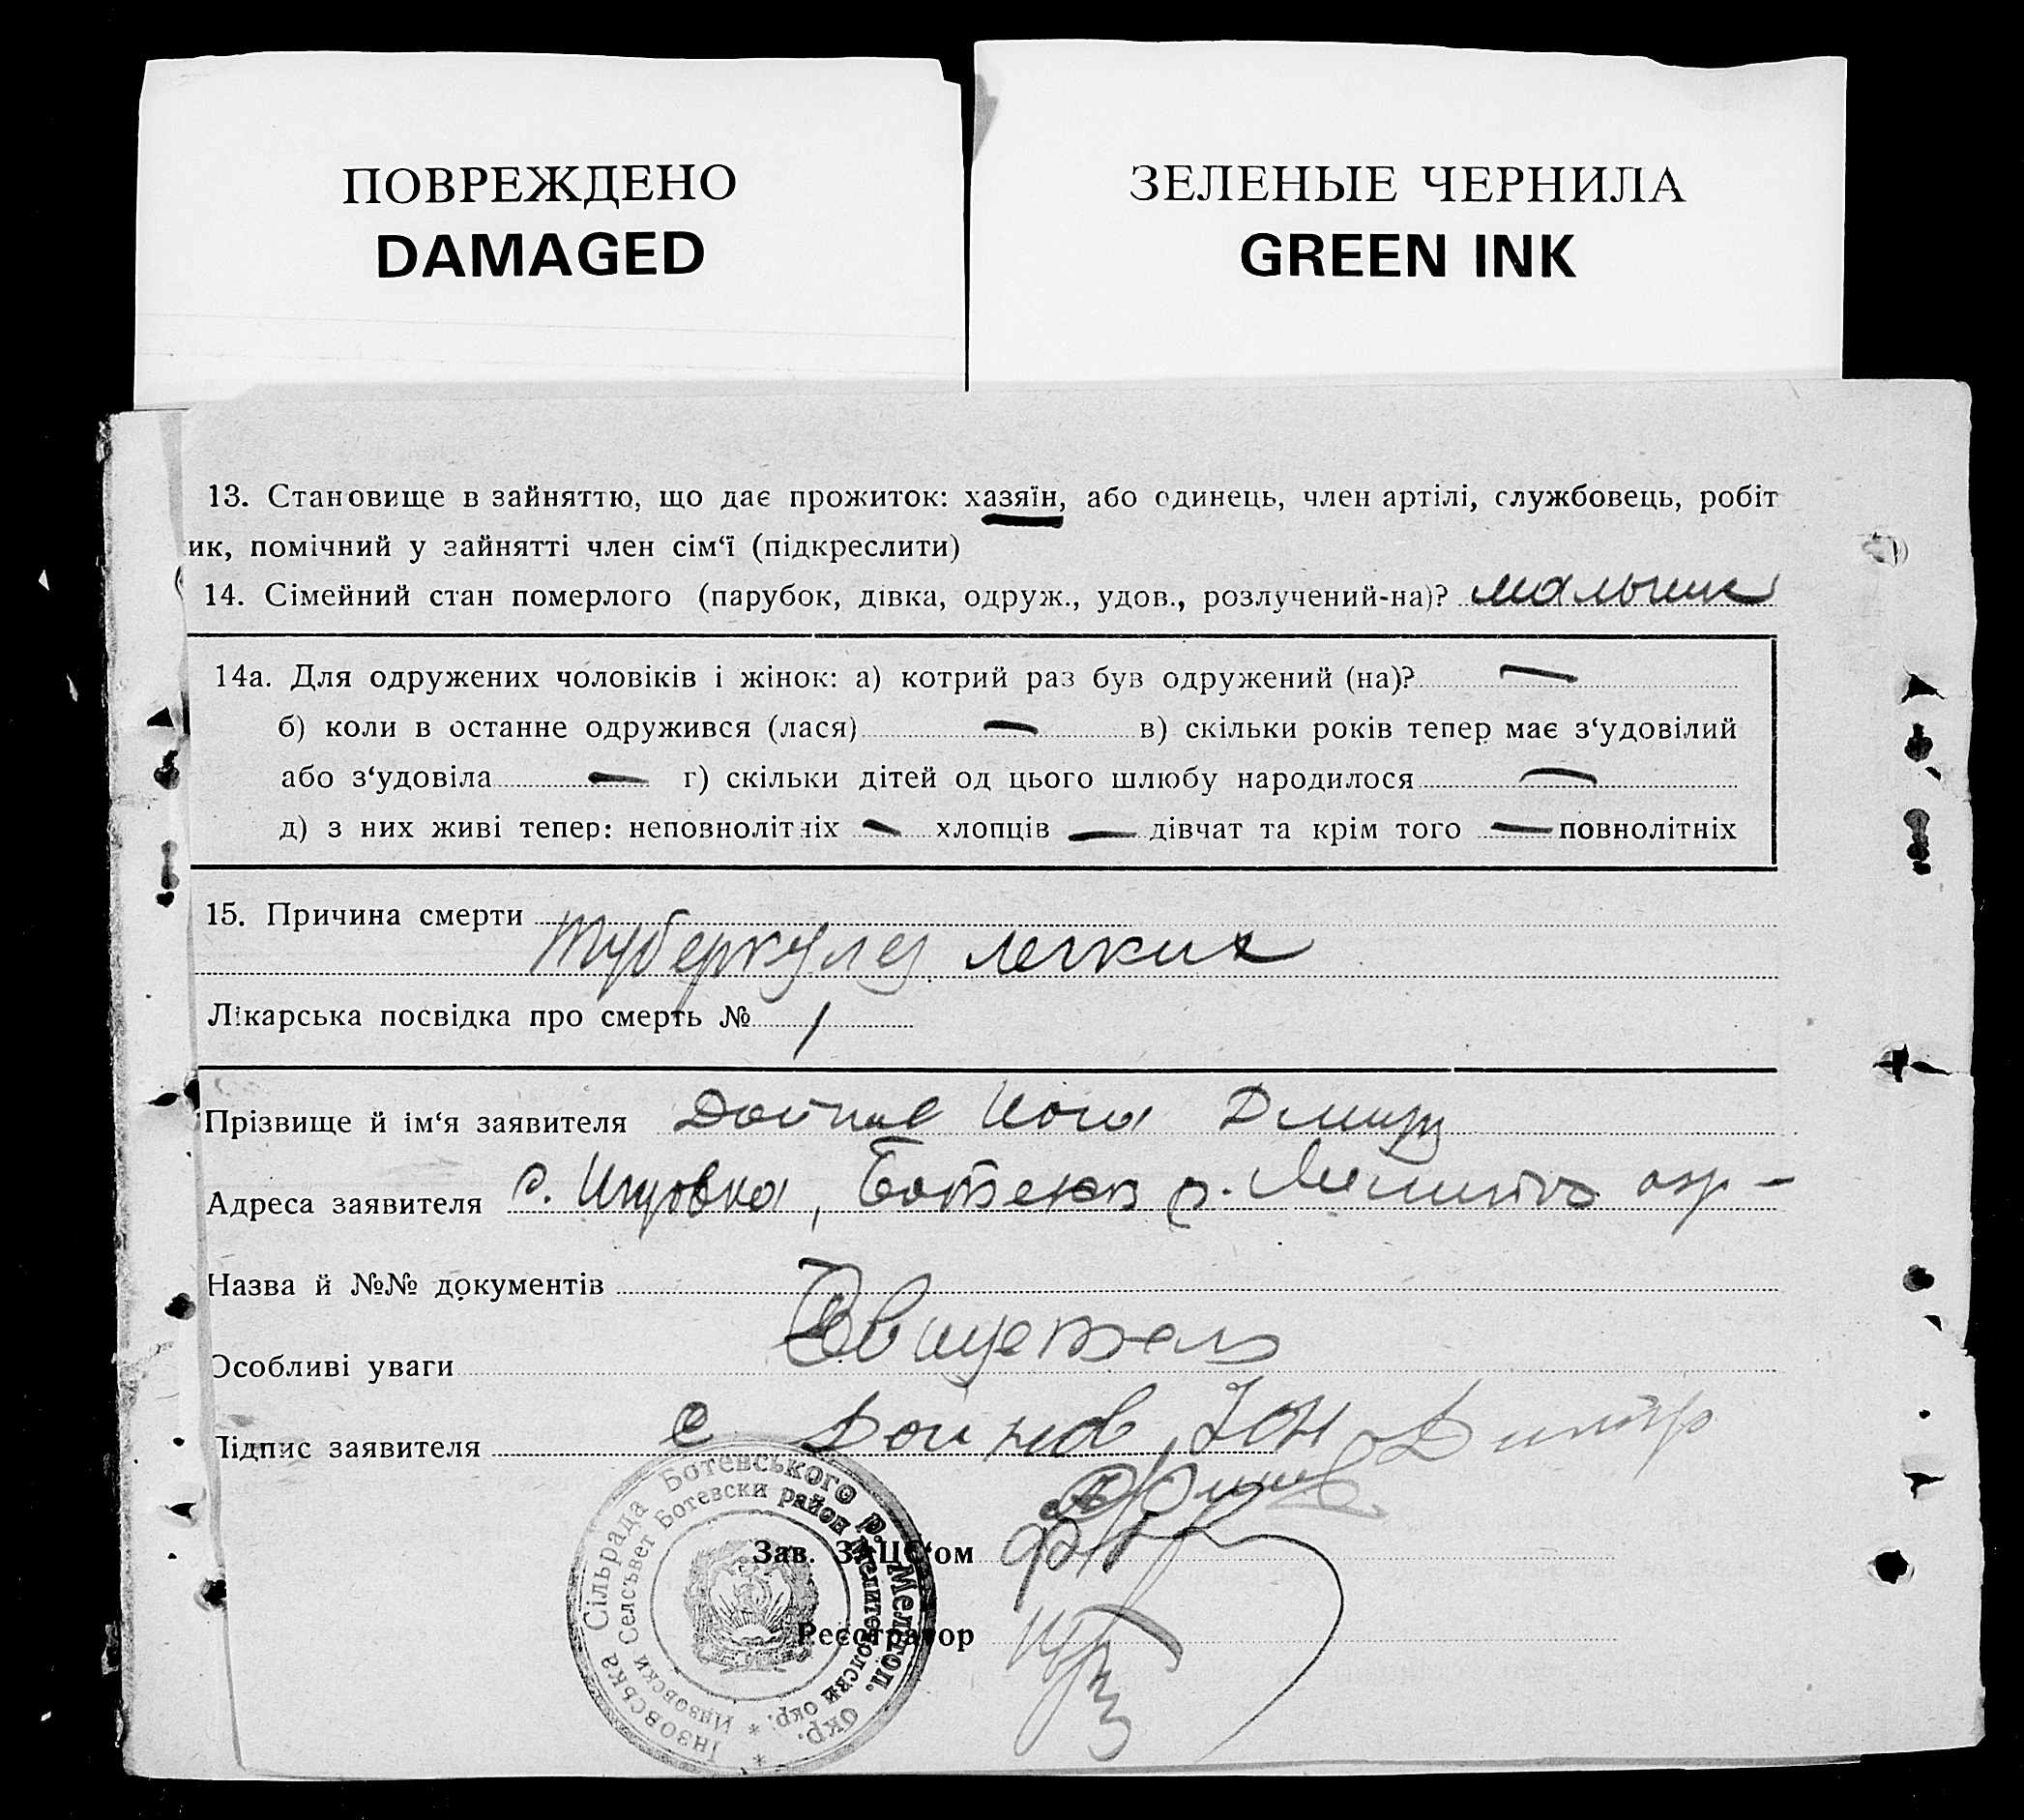 ПОВРЕЖДЕНО
DAMAGED
ЗЕЛЕНЫЕ ЧЕРНИЛА
GREEN INK
13. Становище в зайняттю, що дає прожиток: хазяїн, або одинець, член артілі, службовець, робіт
ик, помічний у зайнятті член сім‘ї (підкреслити)
14. Сімейний стан померлого (парубок, дівка, одруж., удов., розлучений-на)? мальчик
14а. Для одружених чоловіків і жінок: а) котрий раз був одружений (на)? —
б) коли в останне одружився (лася) — в) скільки років тепер має з‘удовілий
або з‘удовіла — г) скільки дітей од цього шлюбу народилося —
д) з них живі тепер: неповнолітніх — хлопців — дівчат та крім того — повнолітніх
15. Причина смерти
туберкулез легких
Лікарська посвідка про смерть № 1
Прізвище й ім‘я заявителя Дойнов Дмитр
Адреса заявителя с. Ботевск р. окр –
Назва й №№ документів
Особливі уваги
Підпис заявителя Дойнов Дмитр
Зав. ЗАЦС‘ом
Реєстратор
Інзовська Сільрада Ботевського р. Мелітоп. окр. *
Инзовски Селсъвет Ботевски район Мелитополски окр. *